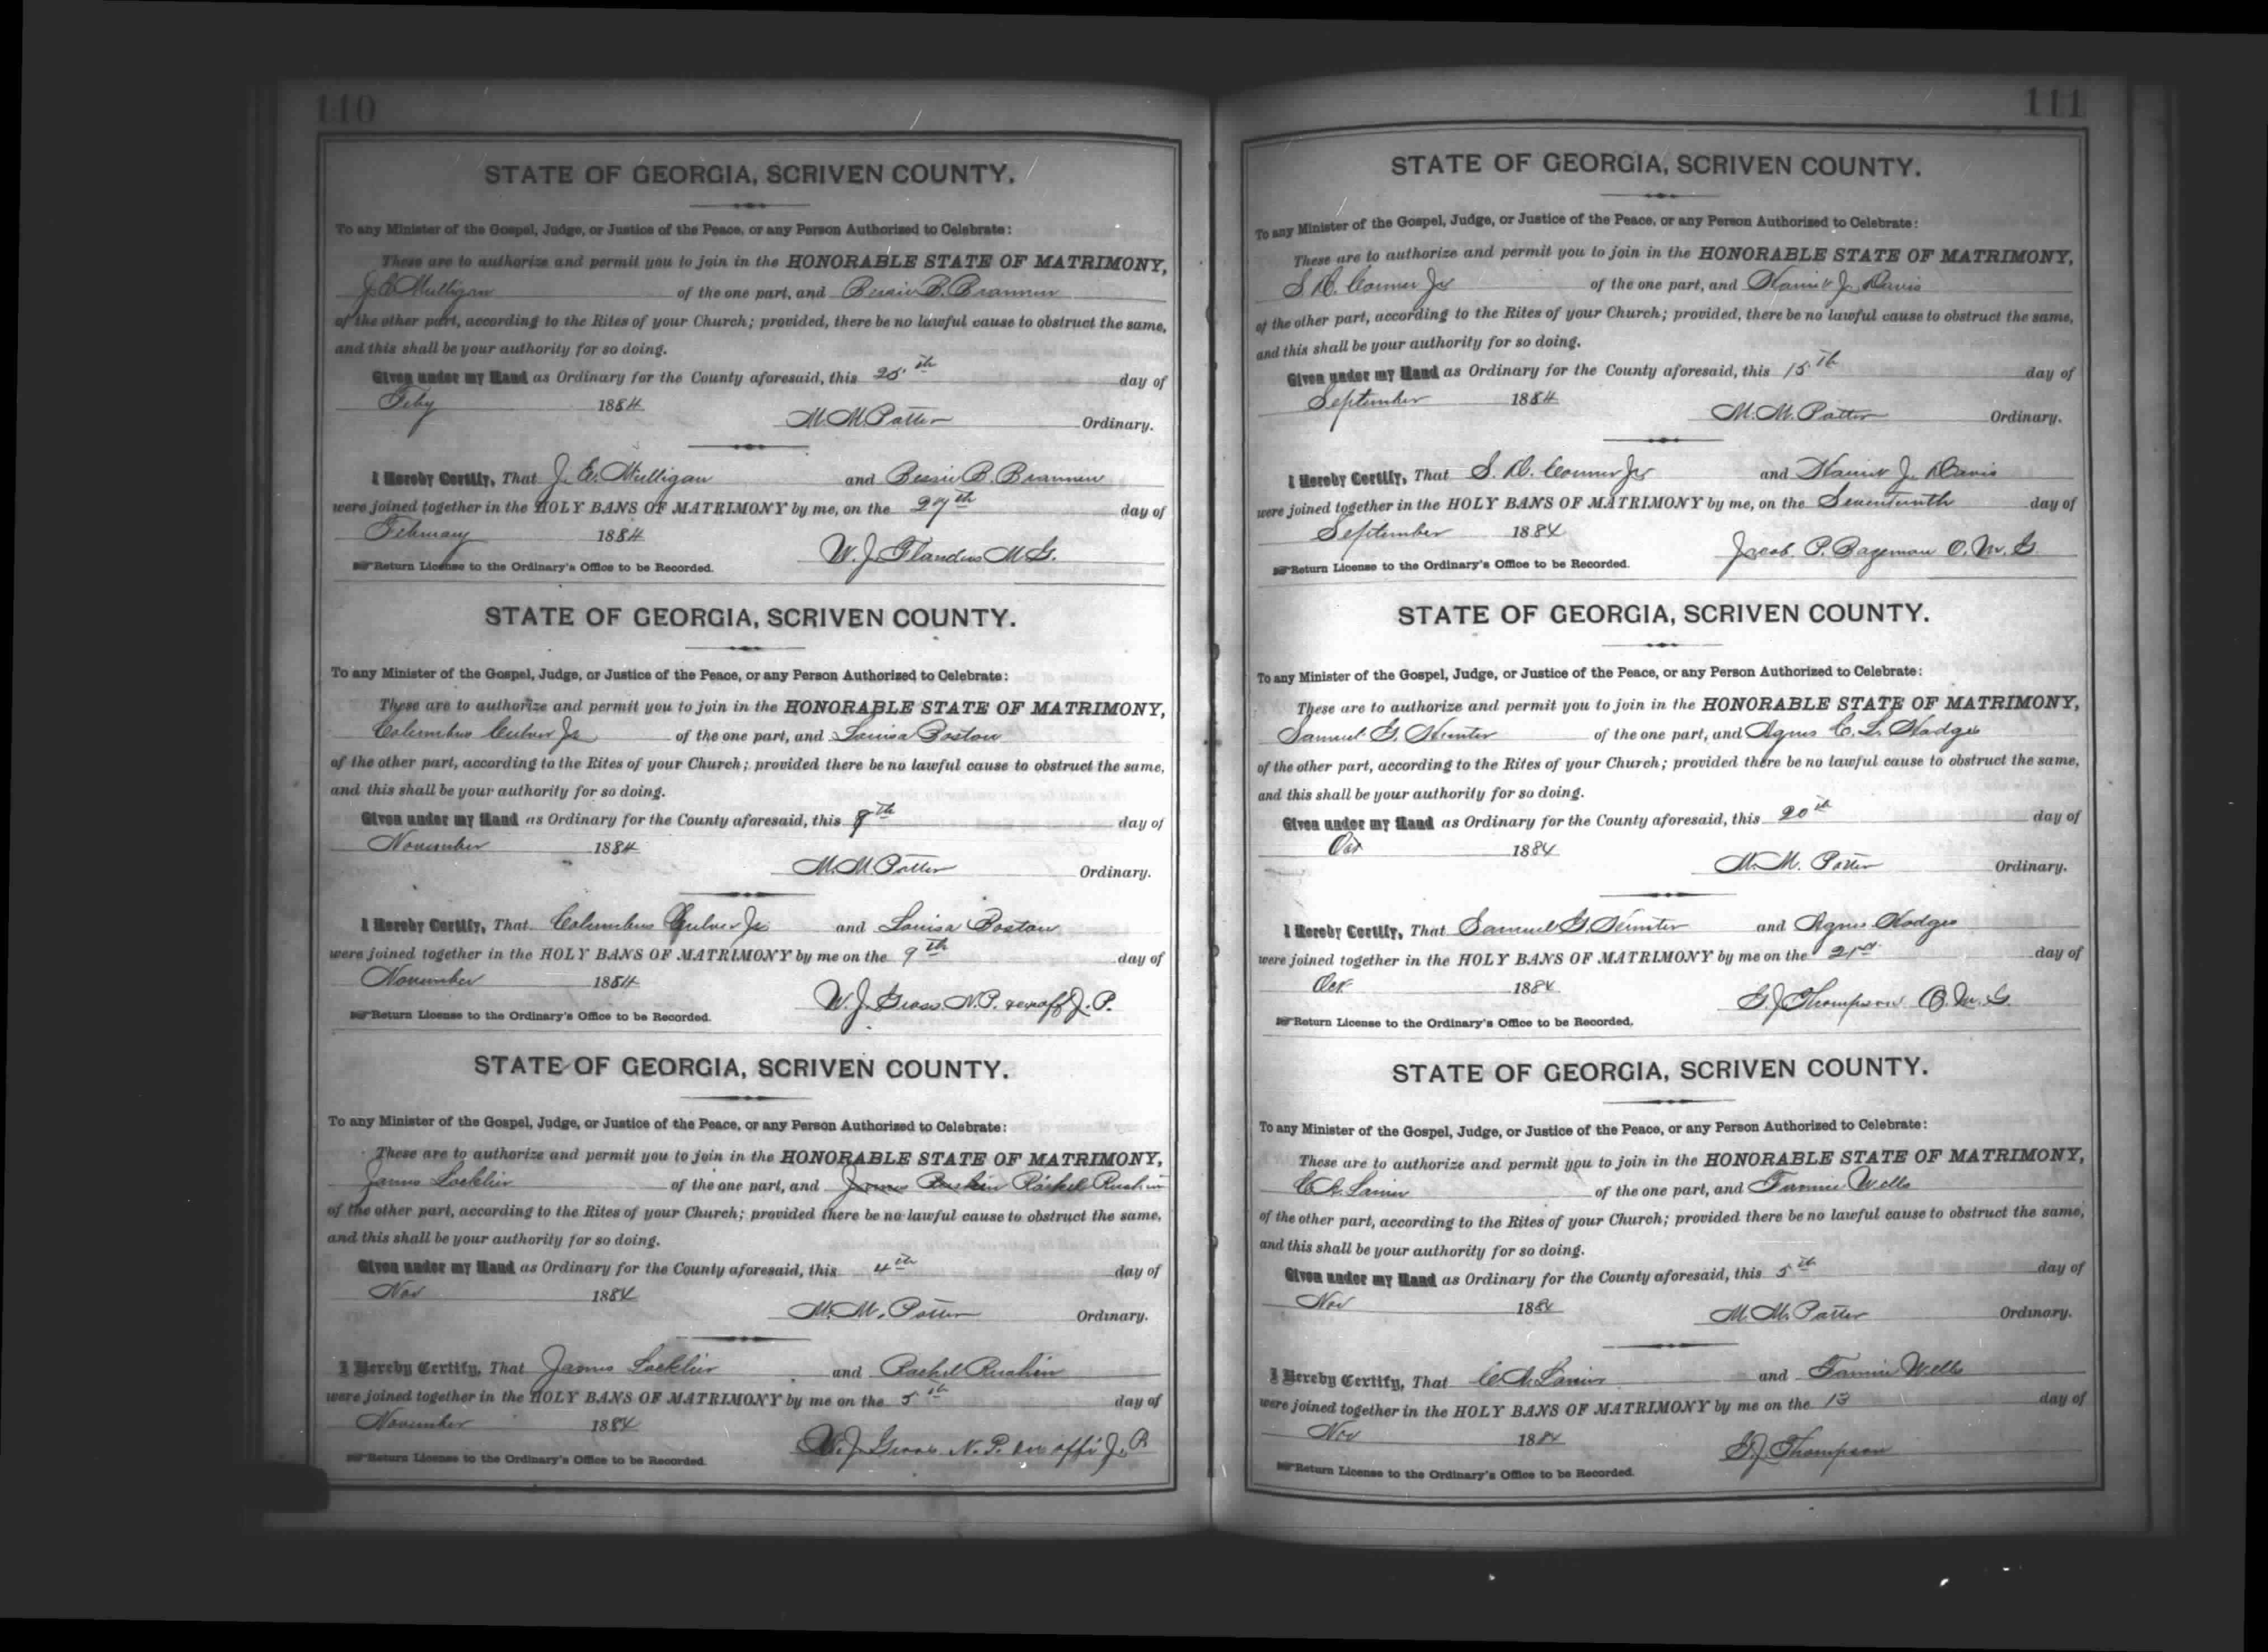 110
STATE OF GEORGIA, SCRIVEN COUNTY.
To any Minister of the Gospel, Judge, or Justice of the Peace, or any Person Authorized to Celebrate:
These are to authorize and permit you to join in the HONORABLE STATE OF MATRIMONY,
J E Mulligan of the one part, and Bessie B. Brannen
of the other part, according to the Rites of your Church; provided, there be no lawful cause to obstruct the same,
and this shall be your authority for so doing.
Given under my Hand as Ordinary for the County aforesaid, this 25th day of
Feby 1884 M. M. Potter Ordinary.
I Hereby Certify, That J. E. Mulligan and Bessie B. Brannen
were joined together in the HOLY BANS OF MATRIMONY by me, on the 27th day of
February 1884 W. J. Flanders M G.
Return License to the Ordinary's Office to be Recorded.
STATE OF GEORGIA, SCRIVEN COUNTY.
To any Minister of the Gospel, Judge, or Justice of the Peace, or any Person Authorized to Celebrate:
These are to authorize and permit you to join in the HONORABLE STATE OF MATRIMONY,
Columbus Culver Jr of the one part, and Louisa Boston
of the other part, according to the Rites of your Church; provided there be no lawful cause to obstruct the same,
and this shall be your authority for so doing.
Given under my Hand as Ordinary for the County aforesaid, this 8th day of
November 1884 M. M. Potter Ordinary.
I Hereby Certify, That Columbus Culver Jr and Louisa Boston
were joined together in the HOLY BANS OF MATRIMONY by me on the 9th day of
November 1884 W. J. Gross N. P. & exoff J. P.
Return License to the Ordinary's Office to be Recorded.
STATE OF GEORGIA, SCRIVEN COUNTY.
To any Minister of the Gospel, Judge, or Justice of the Peace, or any Person Authorized to Celebrate:
These are to authorize and permit you to join in the HONORABLE STATE OF MATRIMONY,
James Locklier of the one part, and James Rushin Rachel Rushin
of the other part, according to the Rites of your Church; provided there be no lawful cause to obstruct the same,
and this shall be your authority for so doing.
Given under my Hand as Ordinary for the County aforesaid, this 4th day of
Nov 1884 M. M. Potter Ordinary.
I Hereby Certify, That James Locklier and Rachel Rushin
were joined together in the HOLY BANS OF MATRIMONY by me on the 5th day of
November 1884 W. J. Gross N. P. & ex offi J. P.
Return License to the Ordinary's Office to be Recorded.
111
STATE OF GEORGIA, SCRIVEN COUNTY.
To any Minister of the Gospel, Judge, or Justice of the Peace, or any Person Authorized to Celebrate:
These are to authorize and permit you to join in the HONORABLE STATE OF MATRIMONY,
S. D. Conner Jr of the one part, and Harriet J. Davis
of the other part, according to the Rites of your Church; provided, there be no lawful cause to obstruct the same,
and this shall be your authority for so doing.
Given under my Hand as Ordinary for the County aforesaid, this 15th day of
September 1884 M. M. Potter Ordinary.
I Hereby Certify, That S. D. Conner Jr and Harriet J. Davis
were joined together in the HOLY BANS OF MATRIMONY by me, on the Seventeenth day of
September 1884 Jacob P. O. M. G.
Return License to the Ordinary's Office to be Recorded.
STATE OF GEORGIA, SCRIVEN COUNTY.
To any Minister of the Gospel, Judge, or Justice of the Peace, or any Person Authorized to Celebrate:
These are to authorize and permit you to join in the HONORABLE STATE OF MATRIMONY,
Samuel G. Hunter of the one part, and Agnes C. L. Hodges
of the other part, according to the Rites of your Church; provided there be no lawful cause to obstruct the same,
and this shall be your authority for so doing.
Given under my Hand as Ordinary for the County aforesaid, this 20th day of
Oct 1884 M. M. Potter Ordinary.
I Hereby Certify, That Samuel G. Hunter and Agnes Hodges
were joined together in the HOLY BANS OF MATRIMONY by me on the 21st day of
Oct 1884 G. J. Thompson O. M. G.
Return License to the Ordinary's Office to be Recorded.
STATE OF GEORGIA, SCRIVEN COUNTY.
To any Minister of the Gospel, Judge, or Justice of the Peace, or any Person Authorized to Celebrate:
These are to authorize and permit you to join in the HONORABLE STATE OF MATRIMONY,
C A. Lanier of the one part, and Fannie Wells
of the other part, according to the Rites of your Church; provided there be no lawful cause to obstruct the same,
and this shall be your authority for so doing.
Given under my Hand as Ordinary for the County aforesaid, this 5th day of
Nov 1884 M. M. Potter Ordinary.
I Hereby Certify, That C A. Lanier and Fannie Wells
were joined together in the HOLY BANS OF MATRIMONY by me on the 13 day of
Nov 1884 G. J. Thompson
Return License to the Ordinary's Office to be Recorded.